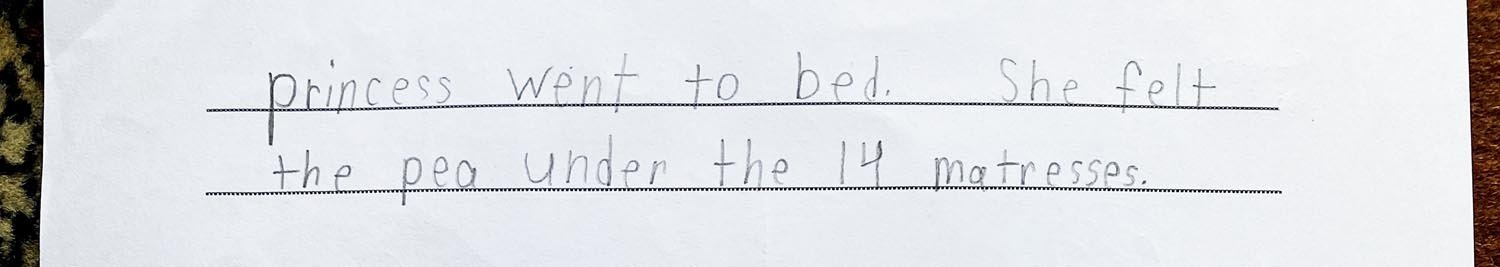 princess went to bed. She felt
the pea under the 14 matresses.